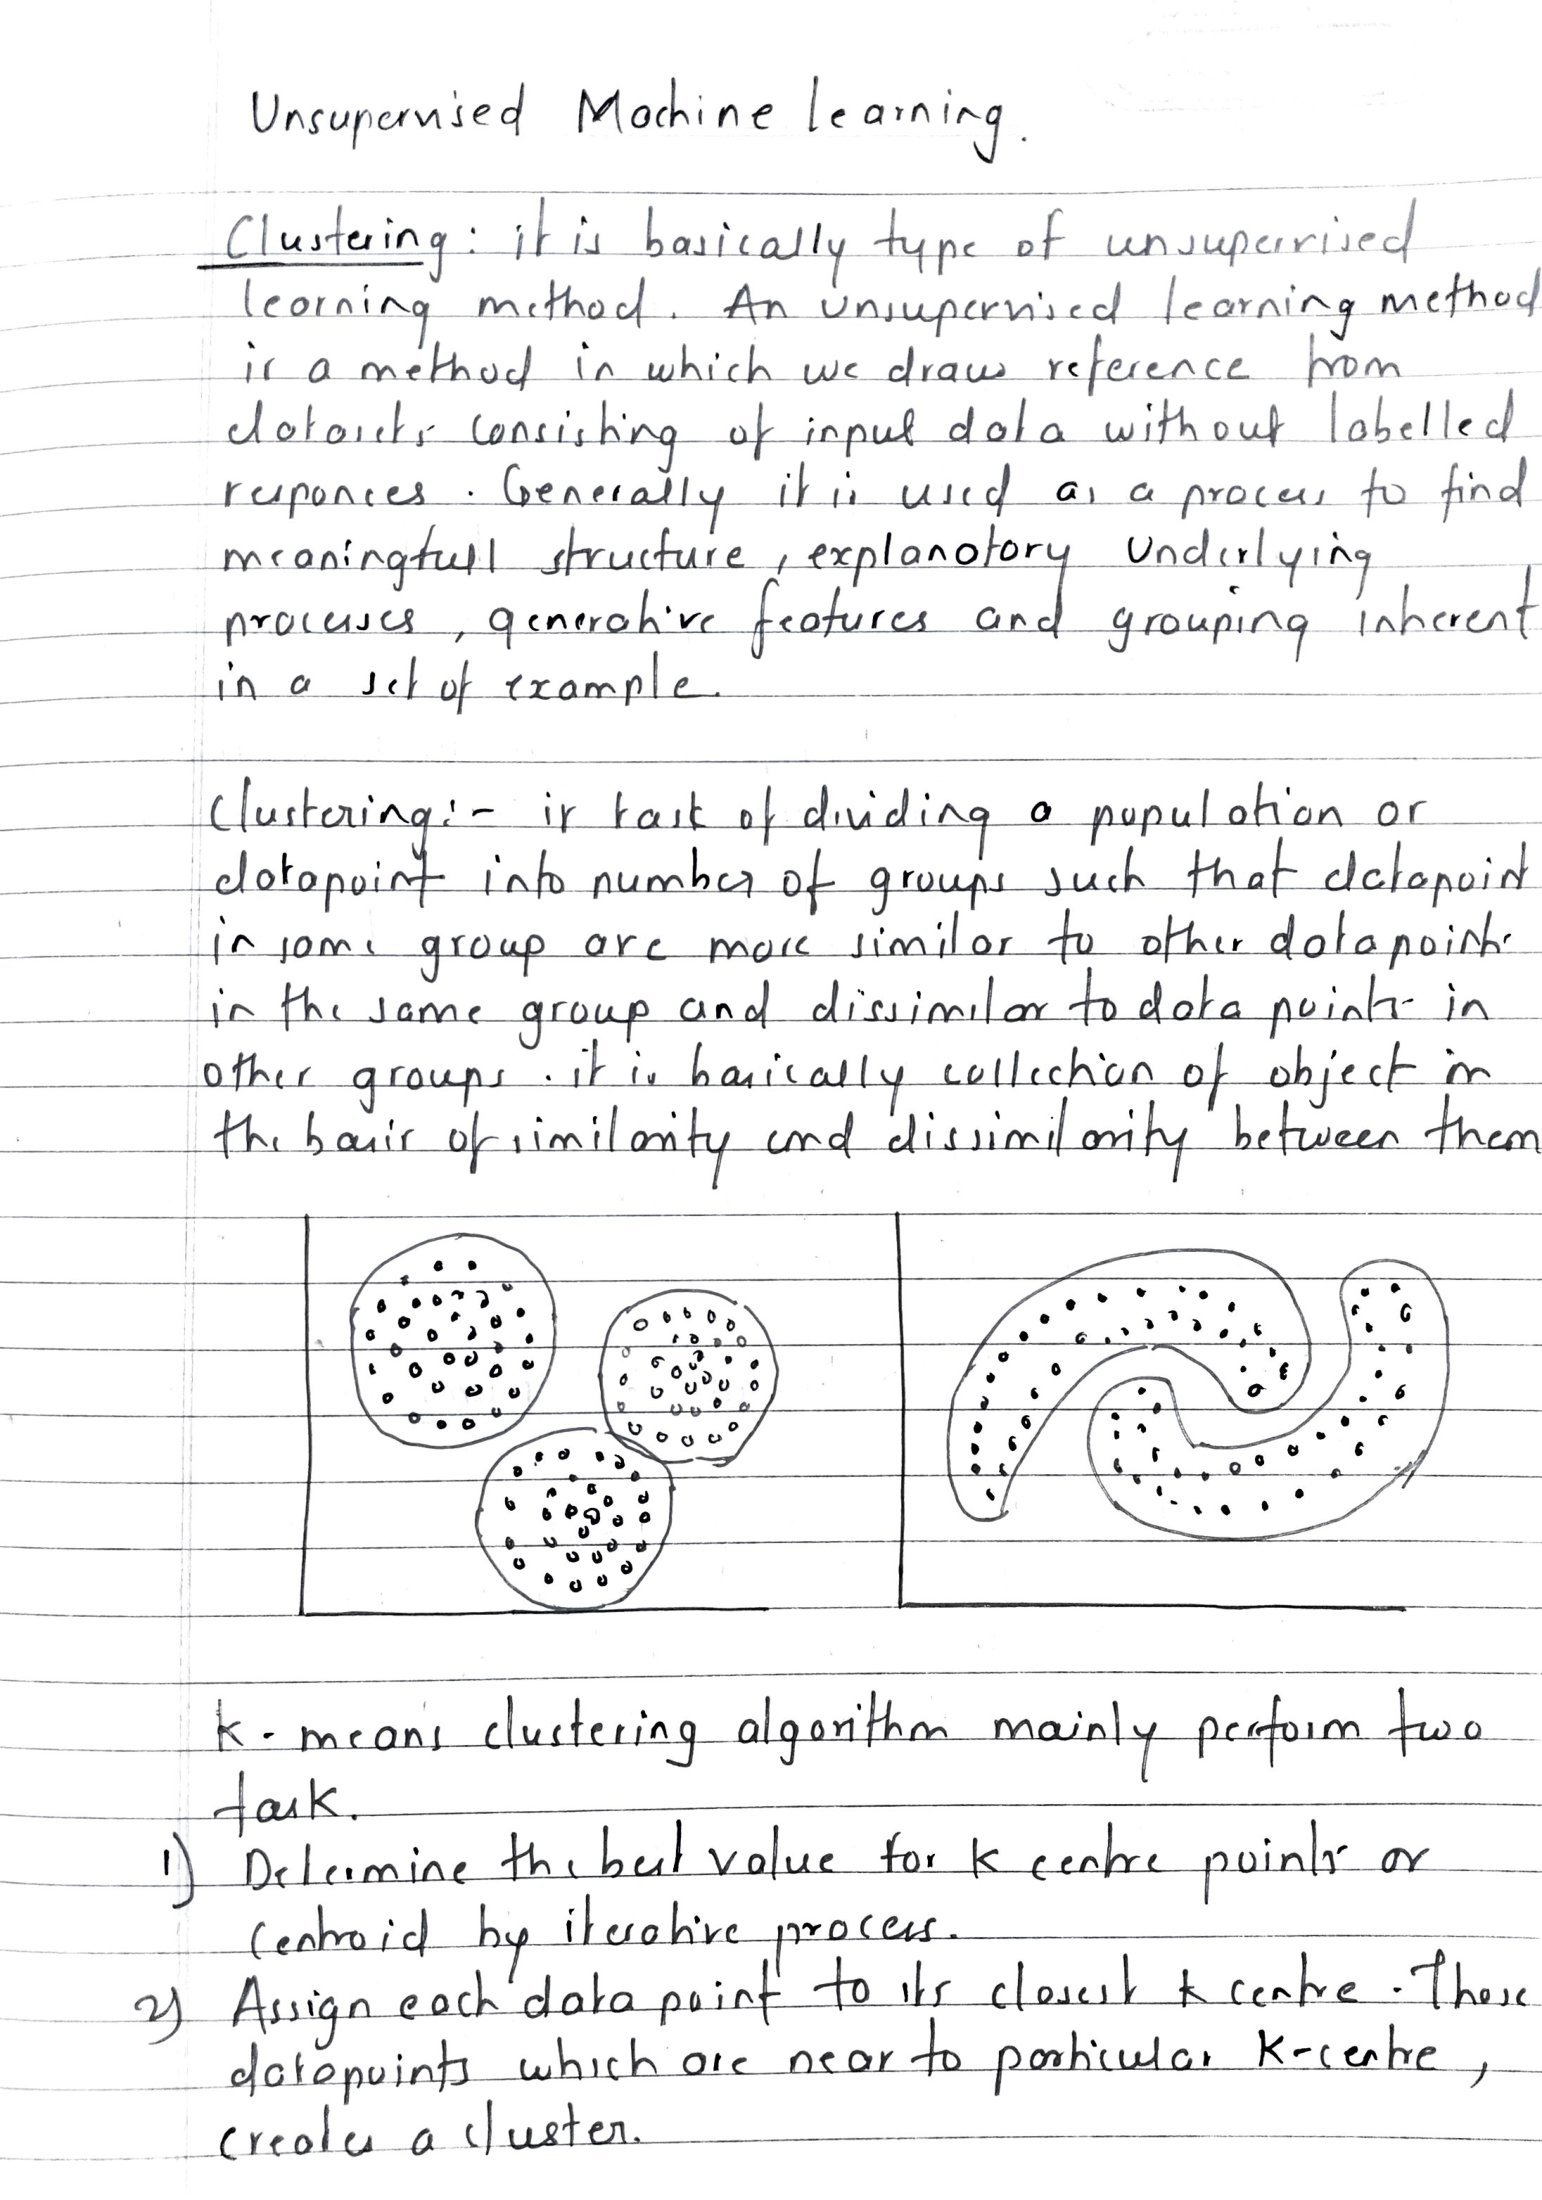 Unsupervised Machine learning.
Clustering : it is basically type of unsupervised
learning method. An unsupervised learning method
is a method in which we draw reference from
datasets consisting of input data without labelled
responces. Generally it is used as a process to find
meaningfull structure, explanatory underlying
processes, generative features and grouping inherent
in a set of example.
Clustering:- is task of dividing a population or
datapoint into number of groups such that datapoint
in same group are more similar to other datapoints
in the same group and dissimilar to data points in
other groups. it is basically collection of object in
the basis of similarity and dissimilarity between them
K-means clustering algorithm mainly perform two
task.
1) Determine the best value for K centre points or
Centroid by iterative process.
2) Assign each data point to its closest k centre. Those
datapoints which are near to particular K-centre,
creates a cluster.